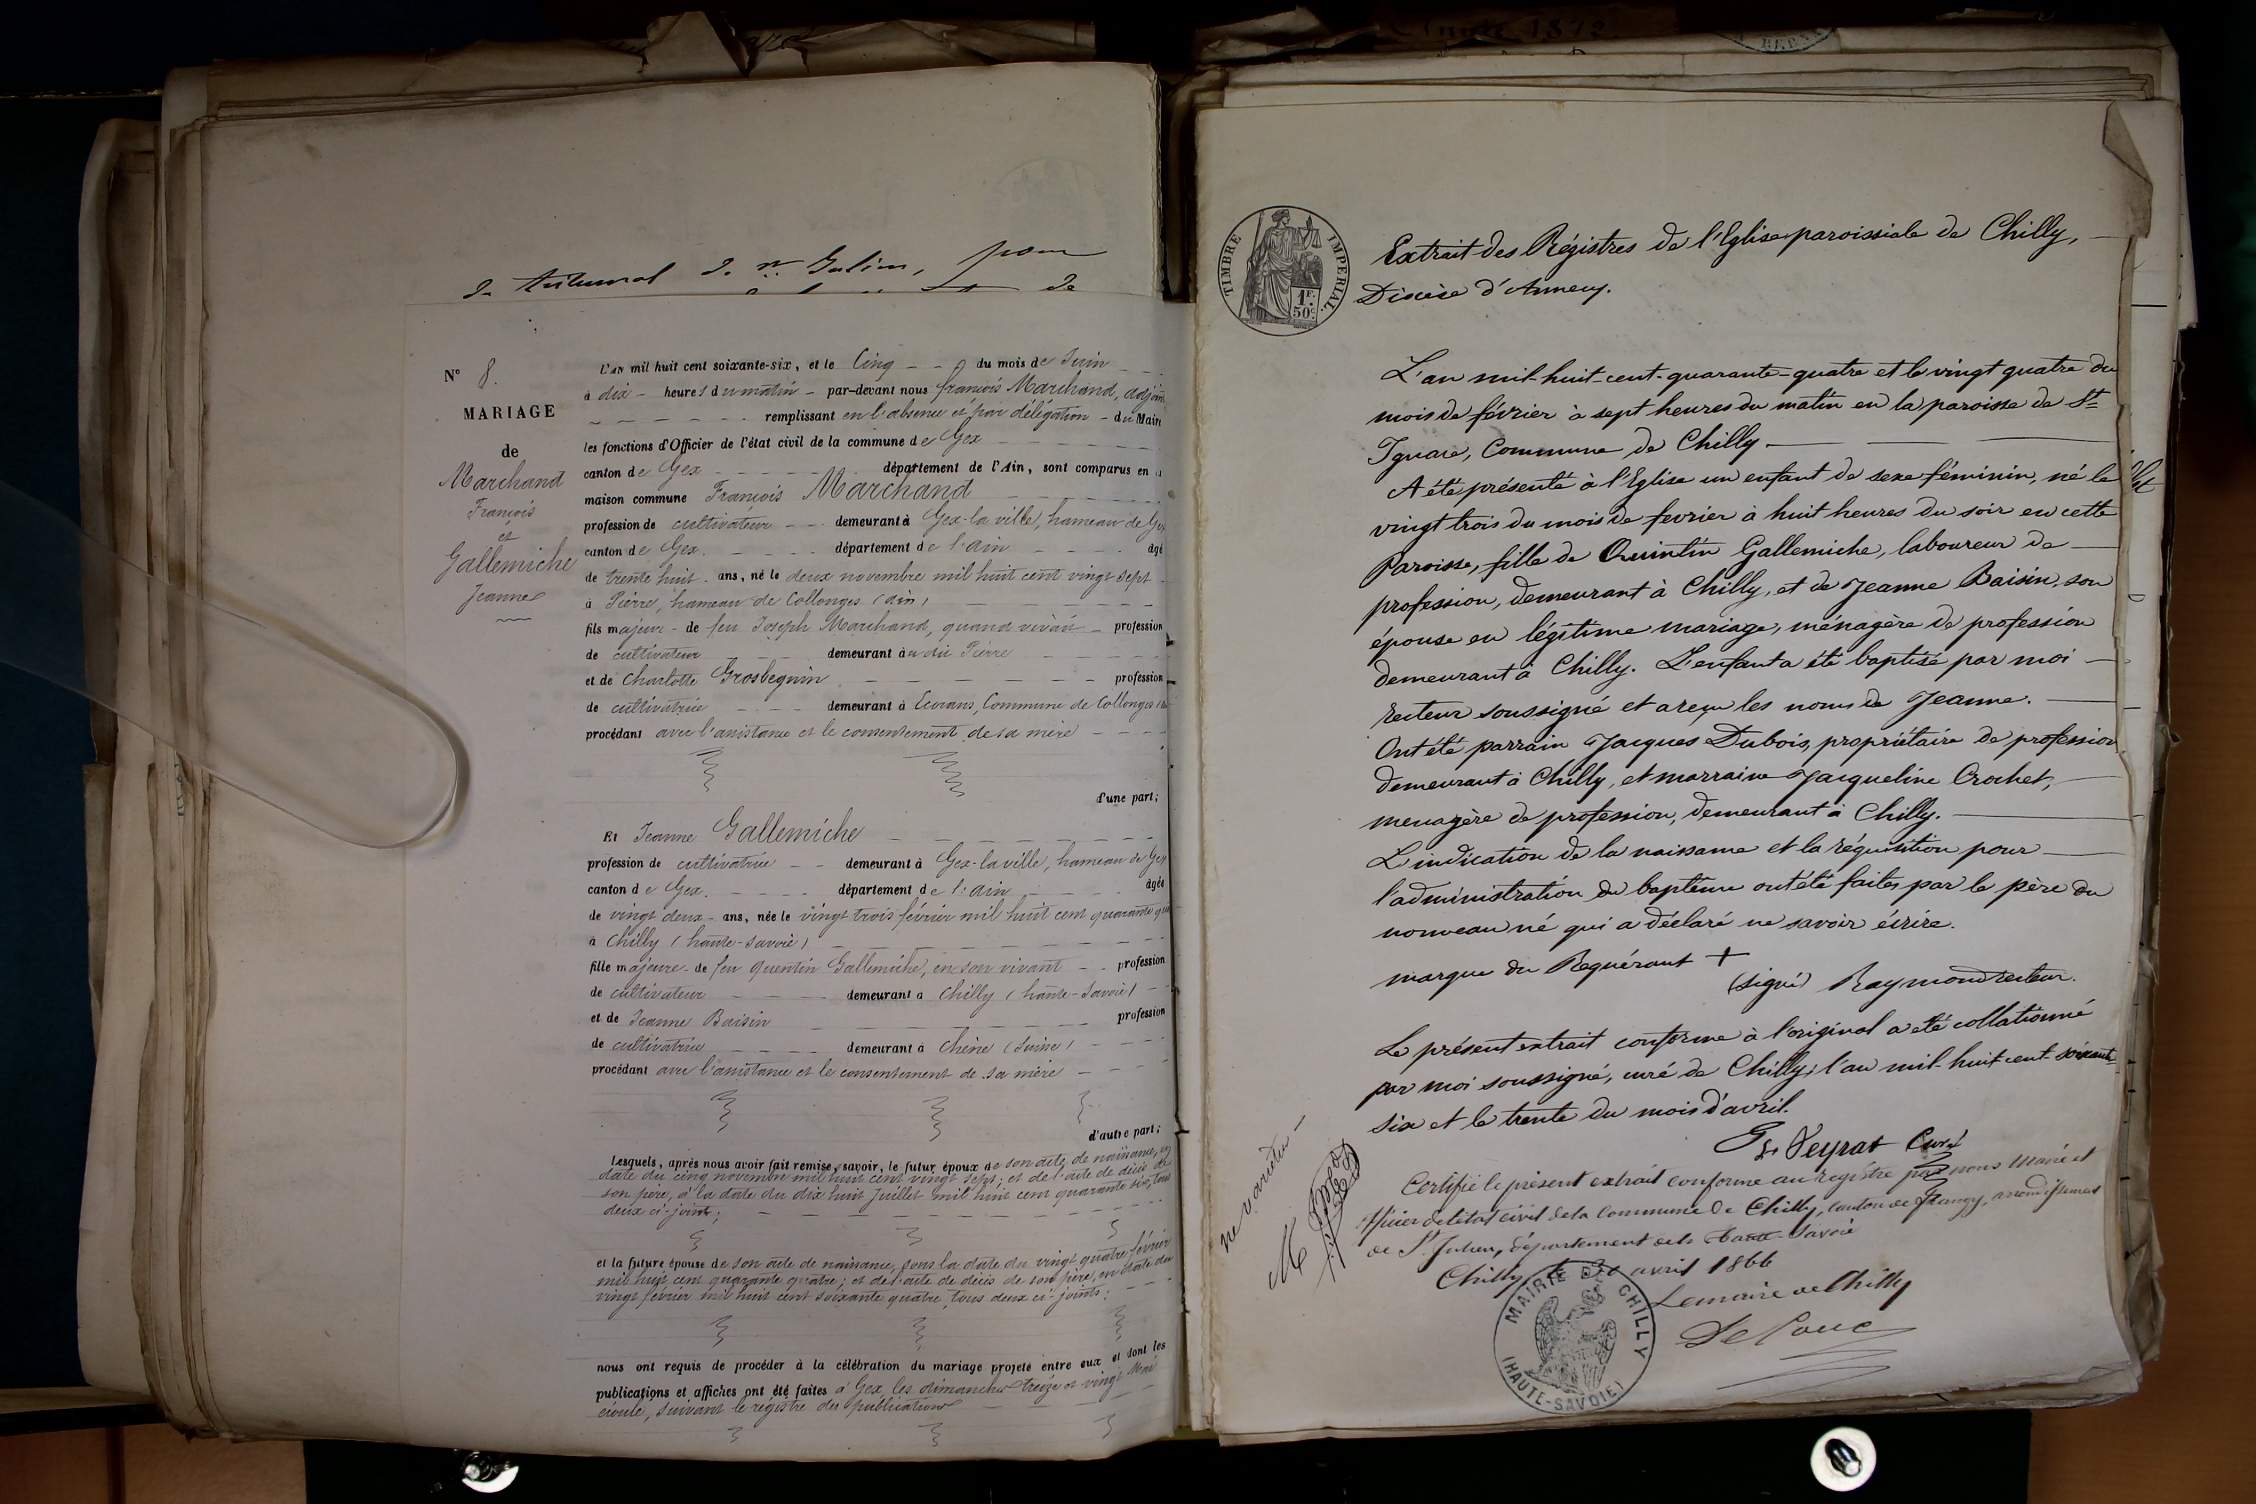 de tribunal de St Julien, pour
de
N° 8.
MARIAGE
de
Marchand
François
et
Gallemiche
Jeanne
L'an mil huit cent soixante-six, et le Cinq du mois de Juin
à dix heures du matin par-devant nous françois Marchand, adjoint
remplissant en l'absence et par délégation du Maire
les fonctions d'Officier de l'état civil de la commune de Gex
canton de Gex département de l'Ain, sont comparus en la
maison commune François Marchand
profession de cultivateur demeurant à Gex-la-ville, hameau de Gex
canton de Gex. département de l'ain âgé
de trente huit ans, né le deux novembre mil huit cent vingt sept
à Pierre, hameau de Collonges (ain)
fils majeur de feu Joseph Marchand, quand vivait profession
de cultivateur demeurant au dit Pierre
et de Charlotte Grosbeguin profession
de cultivatrice demeurant à Ecorans, Commune de Collonges
procédant avec l'assistance et le consentement de sa mère
d'une part;
Et Jeanne Gallemiche
profession de cultivatrice demeurant à Gex-la ville, hameau de Gex
canton de Gex. département de l'ain âgée
de vingt deux ans, née le vingt trois février mil huit cent quarante
à Chilly (haute-savoie)
fille majeure de feu Quentin Gallemiche, en son vivant profession
de cultivateur demeurant à Chilly (haute-Savoie)
et de Jeanne Baisin profession
de cultivatrice demeurant à Chêne (Suisse)
procédant avec l'assistance et le consentement de sa mère
d'autre part;
Lesquels, après nous avoir fait remise, savoir, le futur époux de son acte de naissance, en
date du cinq novembre mil huit cent vingt sept; et de l'acte de décès de
son père, à la date du dix huit Juillet mil huit cent quarante six, tous
deux ci-joints;
et la future épouse de son acte de naissance, sous la date du vingt quatre février
mil huit cent quarante quatre; et de l'acte de décès de son père, en date du
vingt février mil huit cent soixante quatre, tous deux ci-joints;
nous ont requis de procéder à la célébration du mariage projeté entre eux et dont les
publications et affiches ont été faites à Gex les dimanches treize et vingt Mai
écoulé, suivant le registre des publications
TIMBRE IMPERIAL.
1F.
50c
Extrait des Régistres de l'Eglise paroissiale de Chilly,
Diocèse d'Annecy.
L'an mil-huit-cent-quarante-quatre et le vingt quatre du
mois de février à sept heures du matin en la paroisse de St
Ignace, Commune de Chilly
A été présenté à l'Eglise un enfant de sexe féminin, né le
vingt trois du mois de fevrier à huit heures du soir en cette
Paroisse, fille de Quintin Gallemiche, laboureur de
profession, demeurant à Chilly, et de Jeanne Baisin, son
épouse en légitime mariage, ménagère de profession
demeurant à Chilly. L'enfant a été baptisé par moi
recteur soussigné et a reçu les noms de Jeanne.
Ont été parrain Jacques Dubois, propriétaire de profession
demeurant à Chilly, et marraine Jacqueline Crochet,
menagère de profession, demeurant à Chilly.
L'indication de la naissance et la réquisition pour
l'administration du baptême ont été faites par le père du
nouveau né qui a déclaré ne savoir écrire.
marque du Requérant +
(signé) Raymond recteur.
Le présent extrait conforme à l'original a été collationné
par moi soussigné, curé de Chilly, l'an mil-huit-cent-soixante-
six et le trente du mois d'avril.
Veyrat Curé
Certifié le présent extrait conforme au registre par nous Maire et
officier de l'état civil de la Commune de Chilly, canton de frangy, arrondissement
de St Julien, département de la haute-Savoie
Chilly, le 30 avril 1866
Le maire de Chilly
ne varietur
MAIRIE DE CHILLY
(HAUTE-SAVOIE)